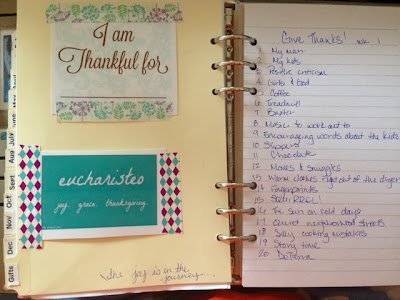 I am
Thankful for
eucharisteo
joy. grace. thanksgiving.
the joy is in the
journey...
June
July
Aug
Sept
Oct
Nov
Dec
Gifts
Give Thanks! wk. 1
1. My man
2. My kids
3. Positive criticism
4. Girls & God
5. Coffee
6. Treadmill
7.
8. Music to work out to
9. Encouraging words about the kids
10. Slippers
11. Chocolate
12. Movies & snuggles
13. Warm clothes right out of the dryer
14. Fingerprints
15.
16. The sun on cold days
17. Quiet neighborhood streets
18. Silly cooking mistakes
19. Story time
20. DoTerra